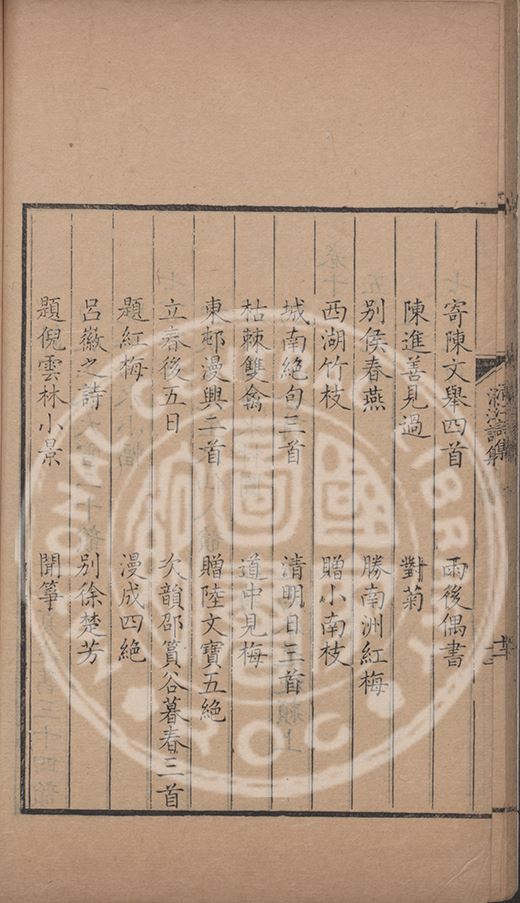 寄陳文舉四首　雨後偶書
陳進善見過　對菊
別侯春燕　勝南洲紅梅
西湖竹枝　贈小南枝
城南絶句三首　清明日三首
枯棘雙禽　道中見梅
東邨漫興二首　贈陸文寶五絶
立春後五日　次韻邵篔谷暮春三首
題紅梅　漫成四絶
呂徽之詩　別徐楚芳
題倪雲林小景　聞箏
清江詩集